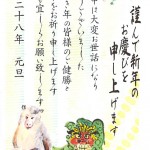 謹んで新年の
お慶びを
申し上げます
中は大変お世話になり
とうございました
き年の皆様のご健勝と
をお祈り申し上げます
宜しくお願い致します
二十八年 元旦